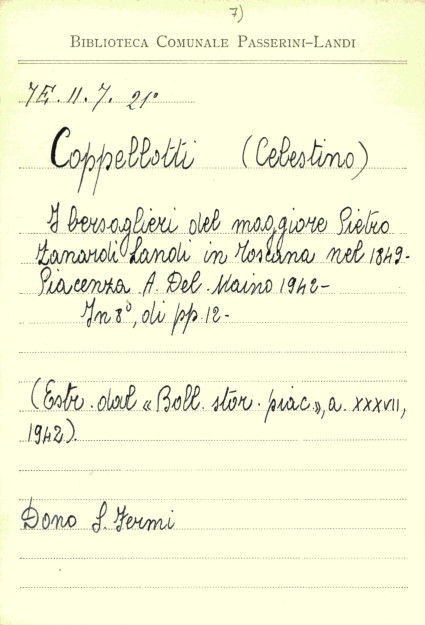 7)
BIBLIOTECA COMUNALE PASSERINI-LANDI
7E. II. 7. 21°
Coppellotti (Celestino)
I bersaglieri del maggiore Pietro
Zanardi Landi in Toscana nel 1849-
Piacenza A. Del Maino 1942-
In 8°, di pp. 12-
(Estr. dal « Boll. stor. piac.», a. XXXVII,
1942).
Dono S. Fermi